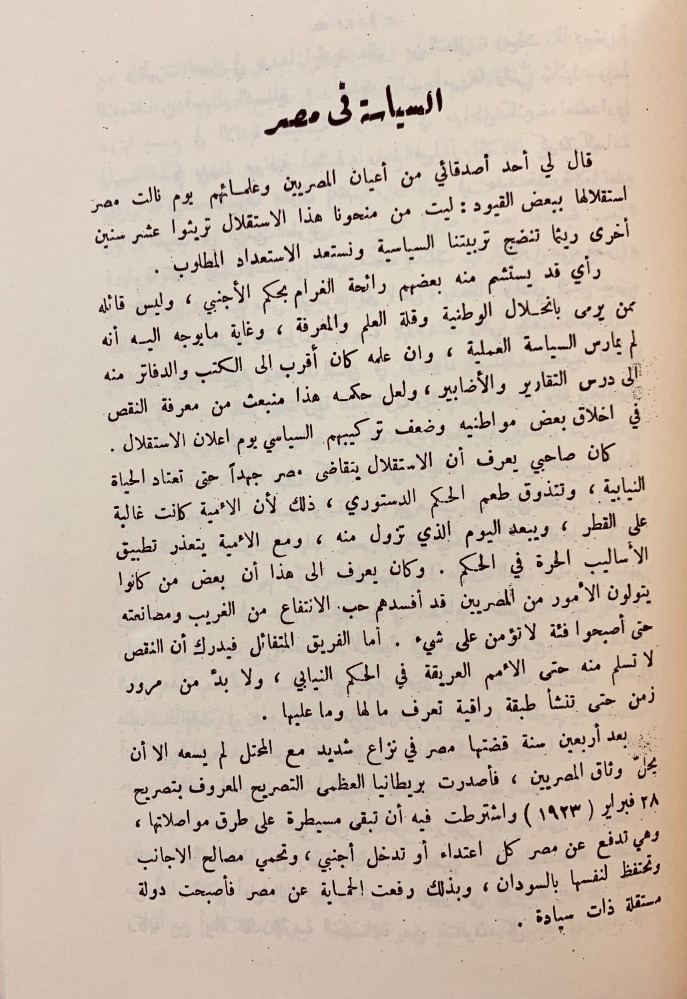 السياسة في مصر
قال لي أحد أصدقائي من أعيان المصريين وعلمائهم يوم نالت مصر
استقلالها ببعض القيود : ليت من منحونا هذا الاستقلال تريثوا عشر سنين
أخرى ريثما تنضج تربيتنا السياسية ونستعد الاستعداد المطلوب .
رأي قد يستشم منه بعضهم رائحة الغرام بحكم الأجنبي ، وليس قائله
ممن يرمى بانحلال الوطنية وقلة العلم والمعرفة ، وغاية مايوجه اليه أنه
لم يمارس السياسة العملية ، وان علمه كان أقرب الى الكتب والدفاتر منه
الى درس التقارير والأضابير ، ولعل حكمه هذا منبعث من معرفة النقص
في اخلاق بعض مواطنيه وضعف تركيبهم السياسي يوم اعلان الاستقلال .
كان صاحبي يعرف أن الاستقلال يتقاضى مصر جهداً حتى تعتاد الحياة
النيابية ، وتتذوق طعم الحكم الدستوري ، ذلك لأن الأمية كانت غالبة
على القطر ، ويبعد اليوم الذي تزول منه ، ومع الأمية يتعذر تطبيق
الأساليب الحرة في الحكم . وكان يعرف الى هذا أن بعض من كانوا
يتولون الأمور من المصريين قد أفسدهم حب الانتفاع من الغريب ومصانعته
حتى أصبحوا فئة لاتؤمن على شيء . أما الفريق المتفائل فيدرك أن النقص
لا تسلم منه حتى الأمم العريقة في الحكم النيابي ، ولا بدّ من مرور
زمن حتى تنشأ طبقة راقية تعرف ما لها وما عليها .
بعد أربعين سنة قضتها مصر في نزاع شديد مع المحتل لم يسعه الا أن
يحلّ وثاق المصريين ، فأصدرت بريطانيا العظمى التصريح المعروف بتصريح
٢٨ فبراير ( ١٩٢٣ ) واشترطت فيه أن تبقى مسيطرة على طرق مواصلاتها ،
وهي تدفع عن مصر كل اعتداء أو تدخل أجنبي ، وتحمي مصالح الاجانب
وتحتفظ لنفسها بالسودان ، وبذلك رفعت الحماية عن مصر فأصبحت دولة
مستقلة ذات سيادة .